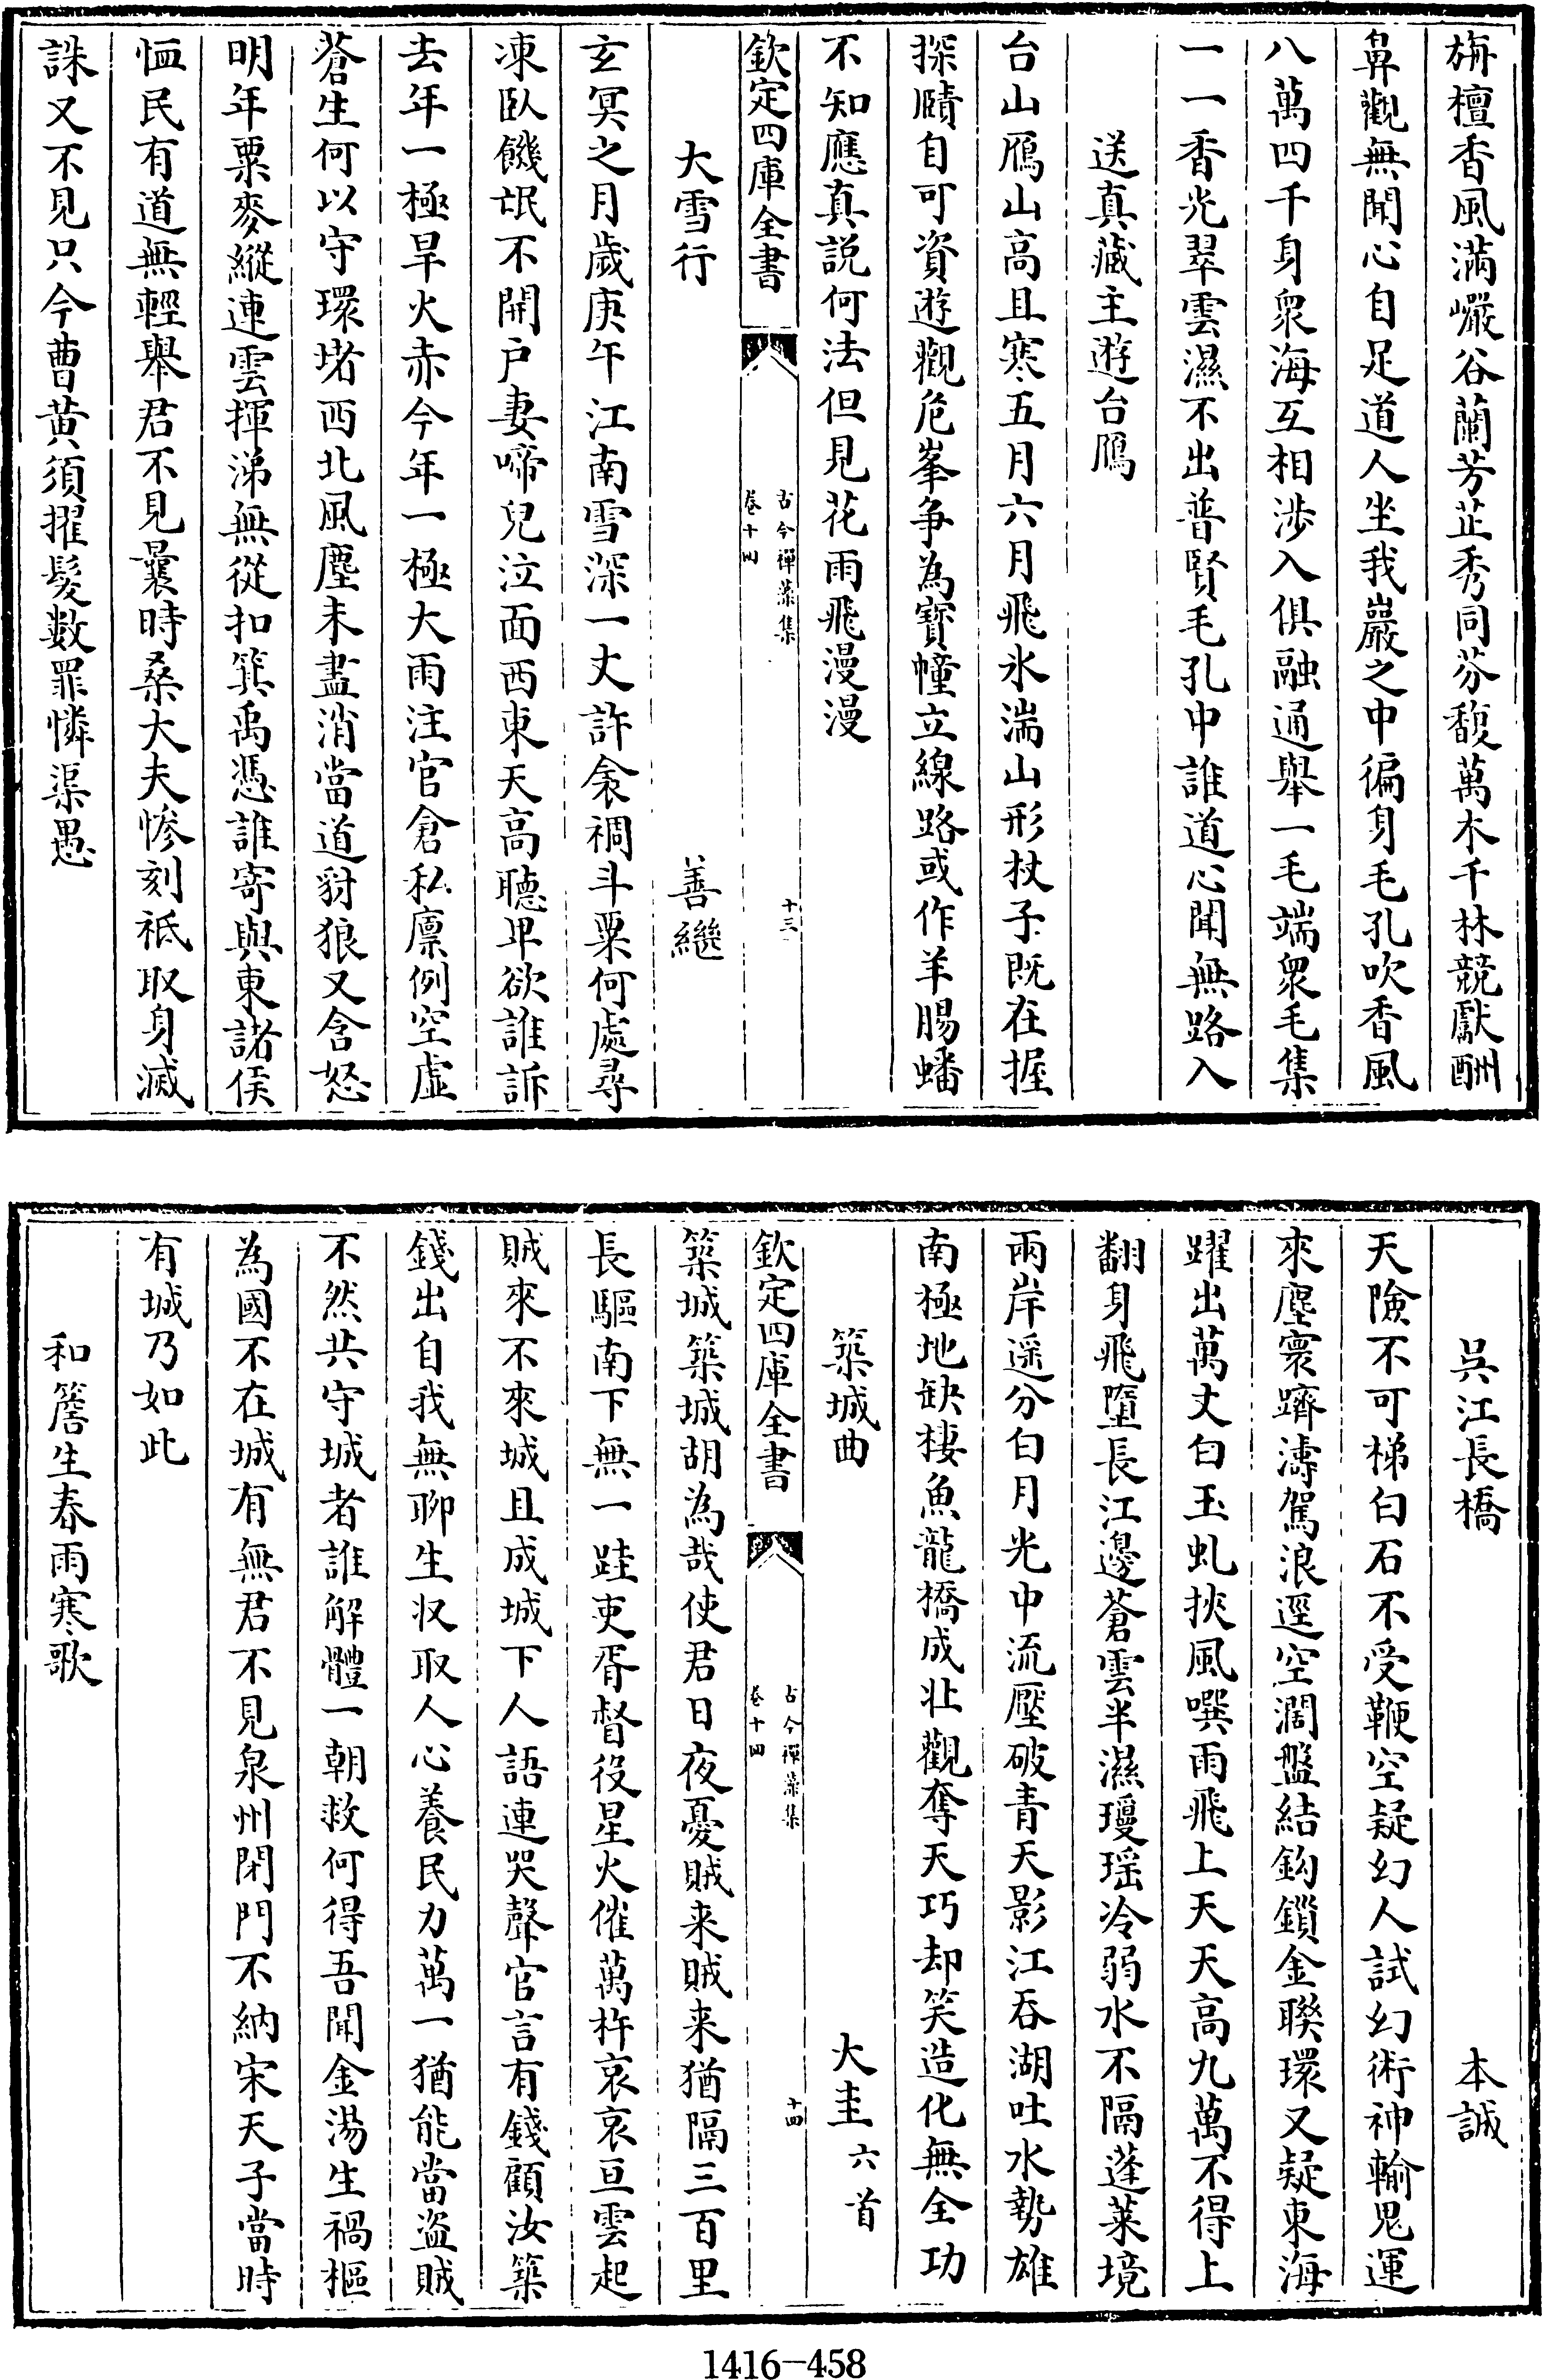 旃檀香風滿巗谷蘭芳芷秀同芬馥萬木千林競獻酬
鼻觀無聞心自足道人坐我巖之中徧身毛孔吹香風
八萬四千身衆海互相涉入俱融通舉一毛端衆毛集
一一香光翠雲濕不出普賢毛孔中誰道心聞無路入
送真藏主遊台鴈
台山鴈山高且寒五月六月飛氷湍山形杖子既在握
探賾自可資遊觀危峯争為寳幢立線路或作羊腸蟠
不知應真説何法但見花雨飛漫漫
欽定四庫全書
古今禪藻集
卷十四
十三
大雪行
善繼
玄冥之月歲庚午江南雪深一丈許衾裯斗粟何處尋
凍臥饑氓不開户妻啼兒泣面西東天高聽卑欲誰訴
去年一極旱火赤今年一極大雨注官倉私廪例空虛
蒼生何以守環堵西北風塵未盡消當道豺狼又含怒
明年粟麥縱連雲揮涕無從扣箕禹憑誰寄與東諸侯
恤民有道無輕舉君不見曩時桑大夫慘刻衹取身滅
誅又不見只今曹黃須擢髮數罪憐渠愚
吳江長橋
本誠
天險不可梯白石不受鞭空疑幻人試幻術神輸鬼運
來塵寰躋濤駕浪逕空濶盤結鈎鎖金聨環又疑東海
躍出萬丈白玉虬挾風噀雨飛上天天高九萬不得上
翻身飛墮長江邊蒼雲半濕瓊瑶冷弱水不隔蓬萊境
兩岸遥分白月光中流壓破青天影江吞湖吐水勢雄
南極地缺棲魚龍橋成壯觀奪天巧却笑造化無全功
築城曲
大圭六首
欽定四庫全書
古今禪藻集
卷十四
十四
築城築城胡為哉使君日夜憂賊来賊来猶隔三百里
長驅南下無一跬吏胥督役星火催萬杵哀哀亘雲起
賊來不來城且成城下人語連哭聲官言有錢顧汝築
錢出自我無聊生収取人心養民力萬一猶能當盗賊
不然共守城者誰解體一朝救何得吾聞金湯生禍樞
為國不在城有無君不見泉州閉門不納宋天子當時
有城乃如此
和簷生春雨寒歌
1416-458